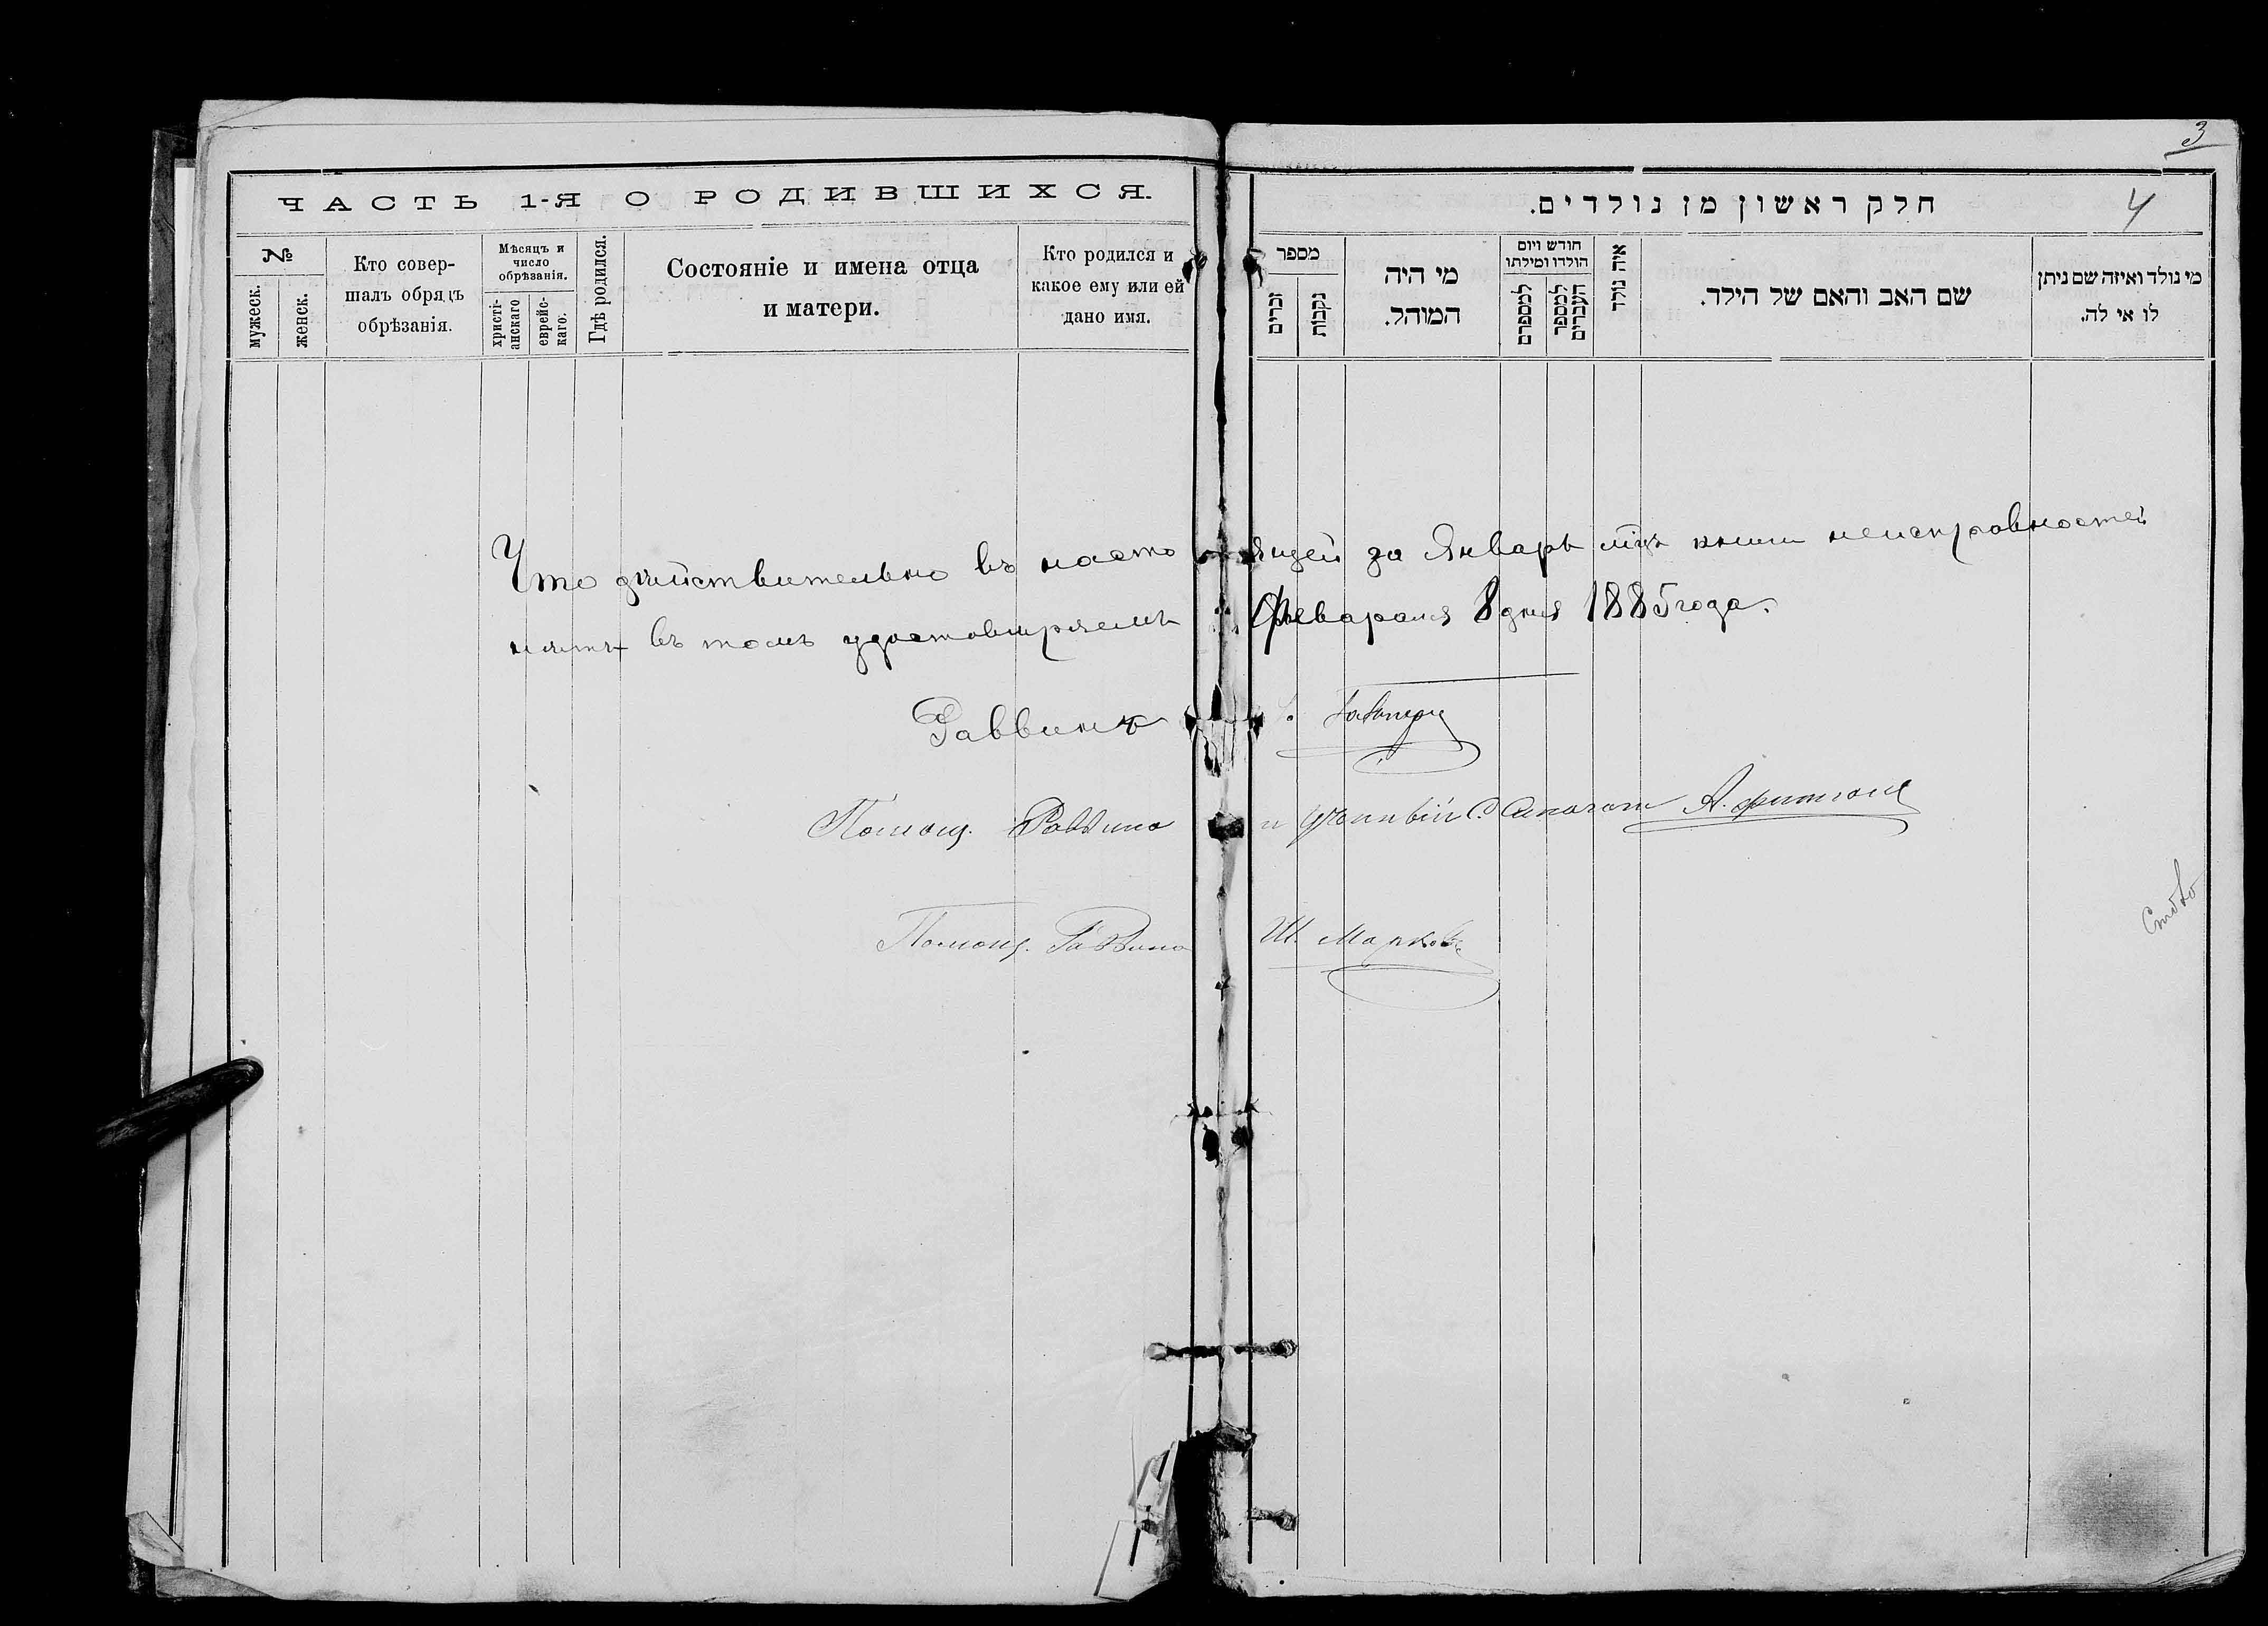 ЧАСТЬ 1-Я О РОДИВШИХСЯ.
№
мужеск.
женск.
Кто совер-
шалъ обрядъ
обрѣзанія.
Мѣсяцъ и
число
обрѣзанія.
христі-
анскаго
еврейс-
каго.
Гдѣ родился.
Состояніе и имена отца
и матери.
Кто родился и
какое ему или ей
дано имя.
3
חלק ראשון מן נולדים.
4
מספר
זכרים
נקבות
מי היה
המוהל.
חודש ויום
הולדו ומילתו
למספרם
למספר
העברים
איה נולד
שם האב והאם של הילד.
מי נולד ואיזה שם ניתן
לו אי לה.
Что дѣйствительно въ настоящей за Январь мцъ книги неисправностей
нѣтъ въ томъ удостовѣряемъ Февараля 8 дня 1885 года.
Раввинъ
Помощ. Раввина и А.
Помощ. Раввина Ш. Марковъ